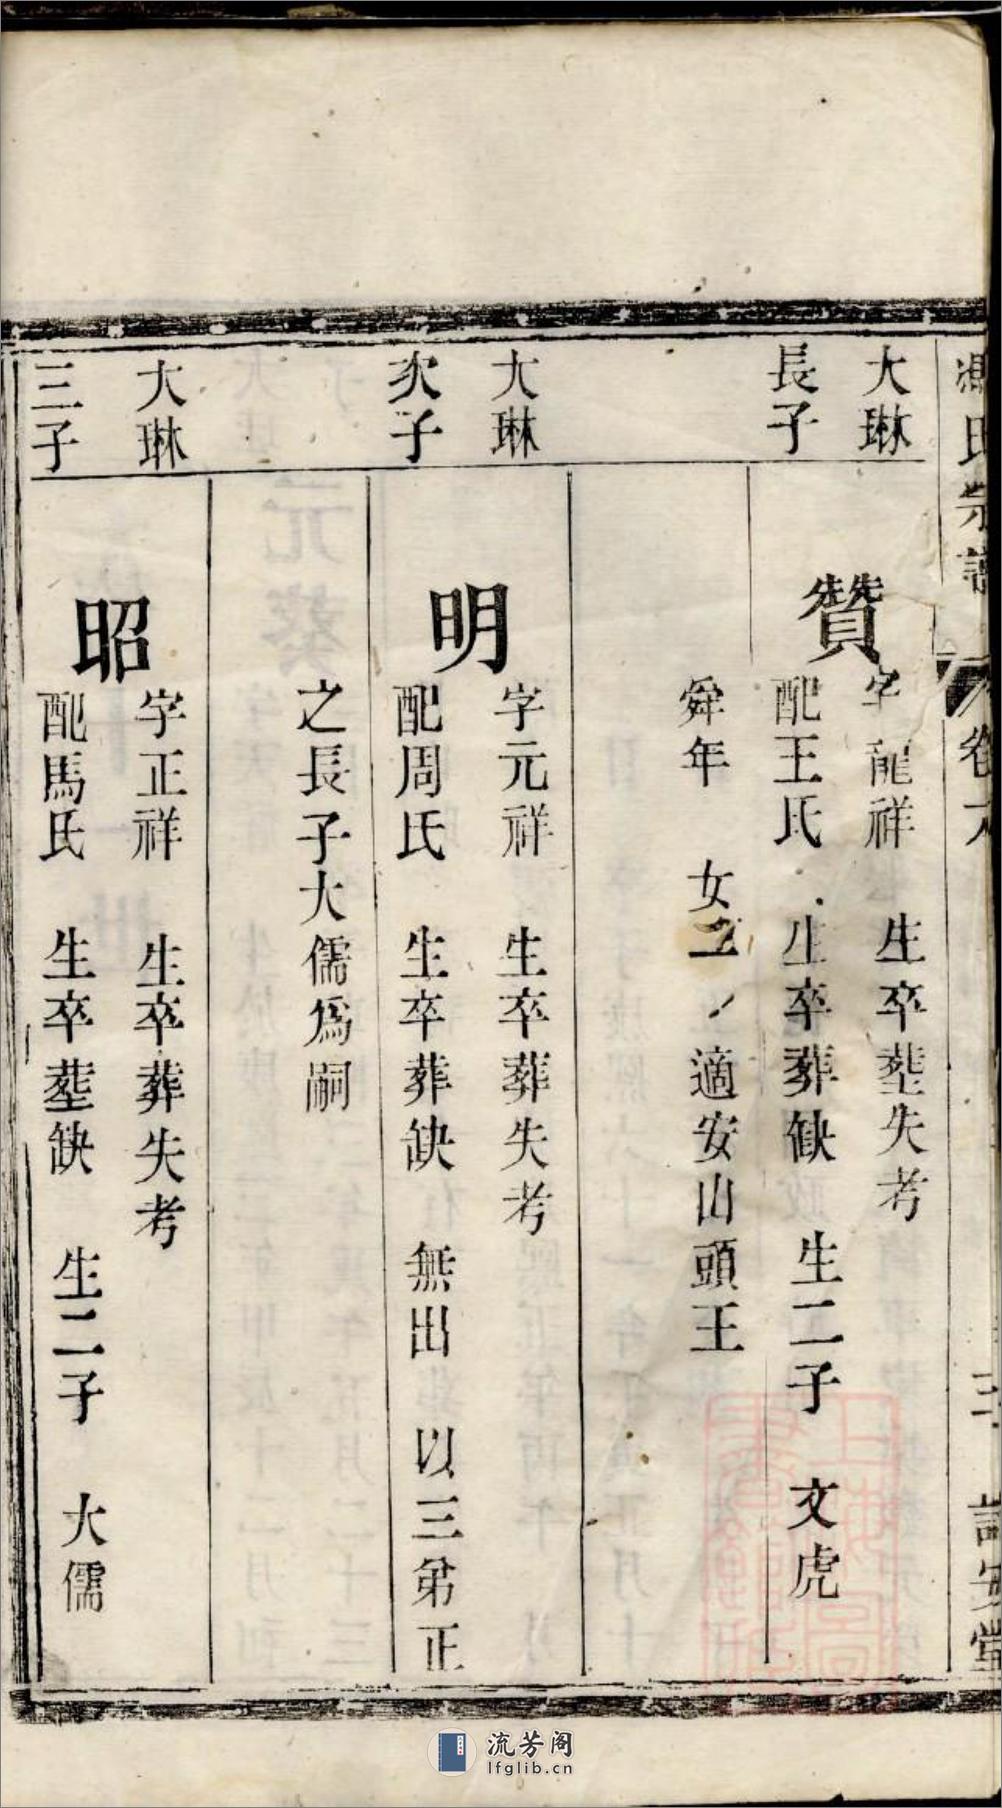 氏宗譜
卷六
三
安堂
大琳
長子
贊
字龍祥 生卒塟失考
配王氏 生卒葬缺 生二子 文虎
舜年 女二 適安山頭王
大琳
次子
明
字元祥 生卒葬失考
配周氏 生卒葬缺 無出 以三弟正
之長子大儒爲嗣
大琳
三子
昭
字正祥 生卒葬失考
配馬氏 生卒塟缺 生二子 大儒
流芳阁
lfglib.cn